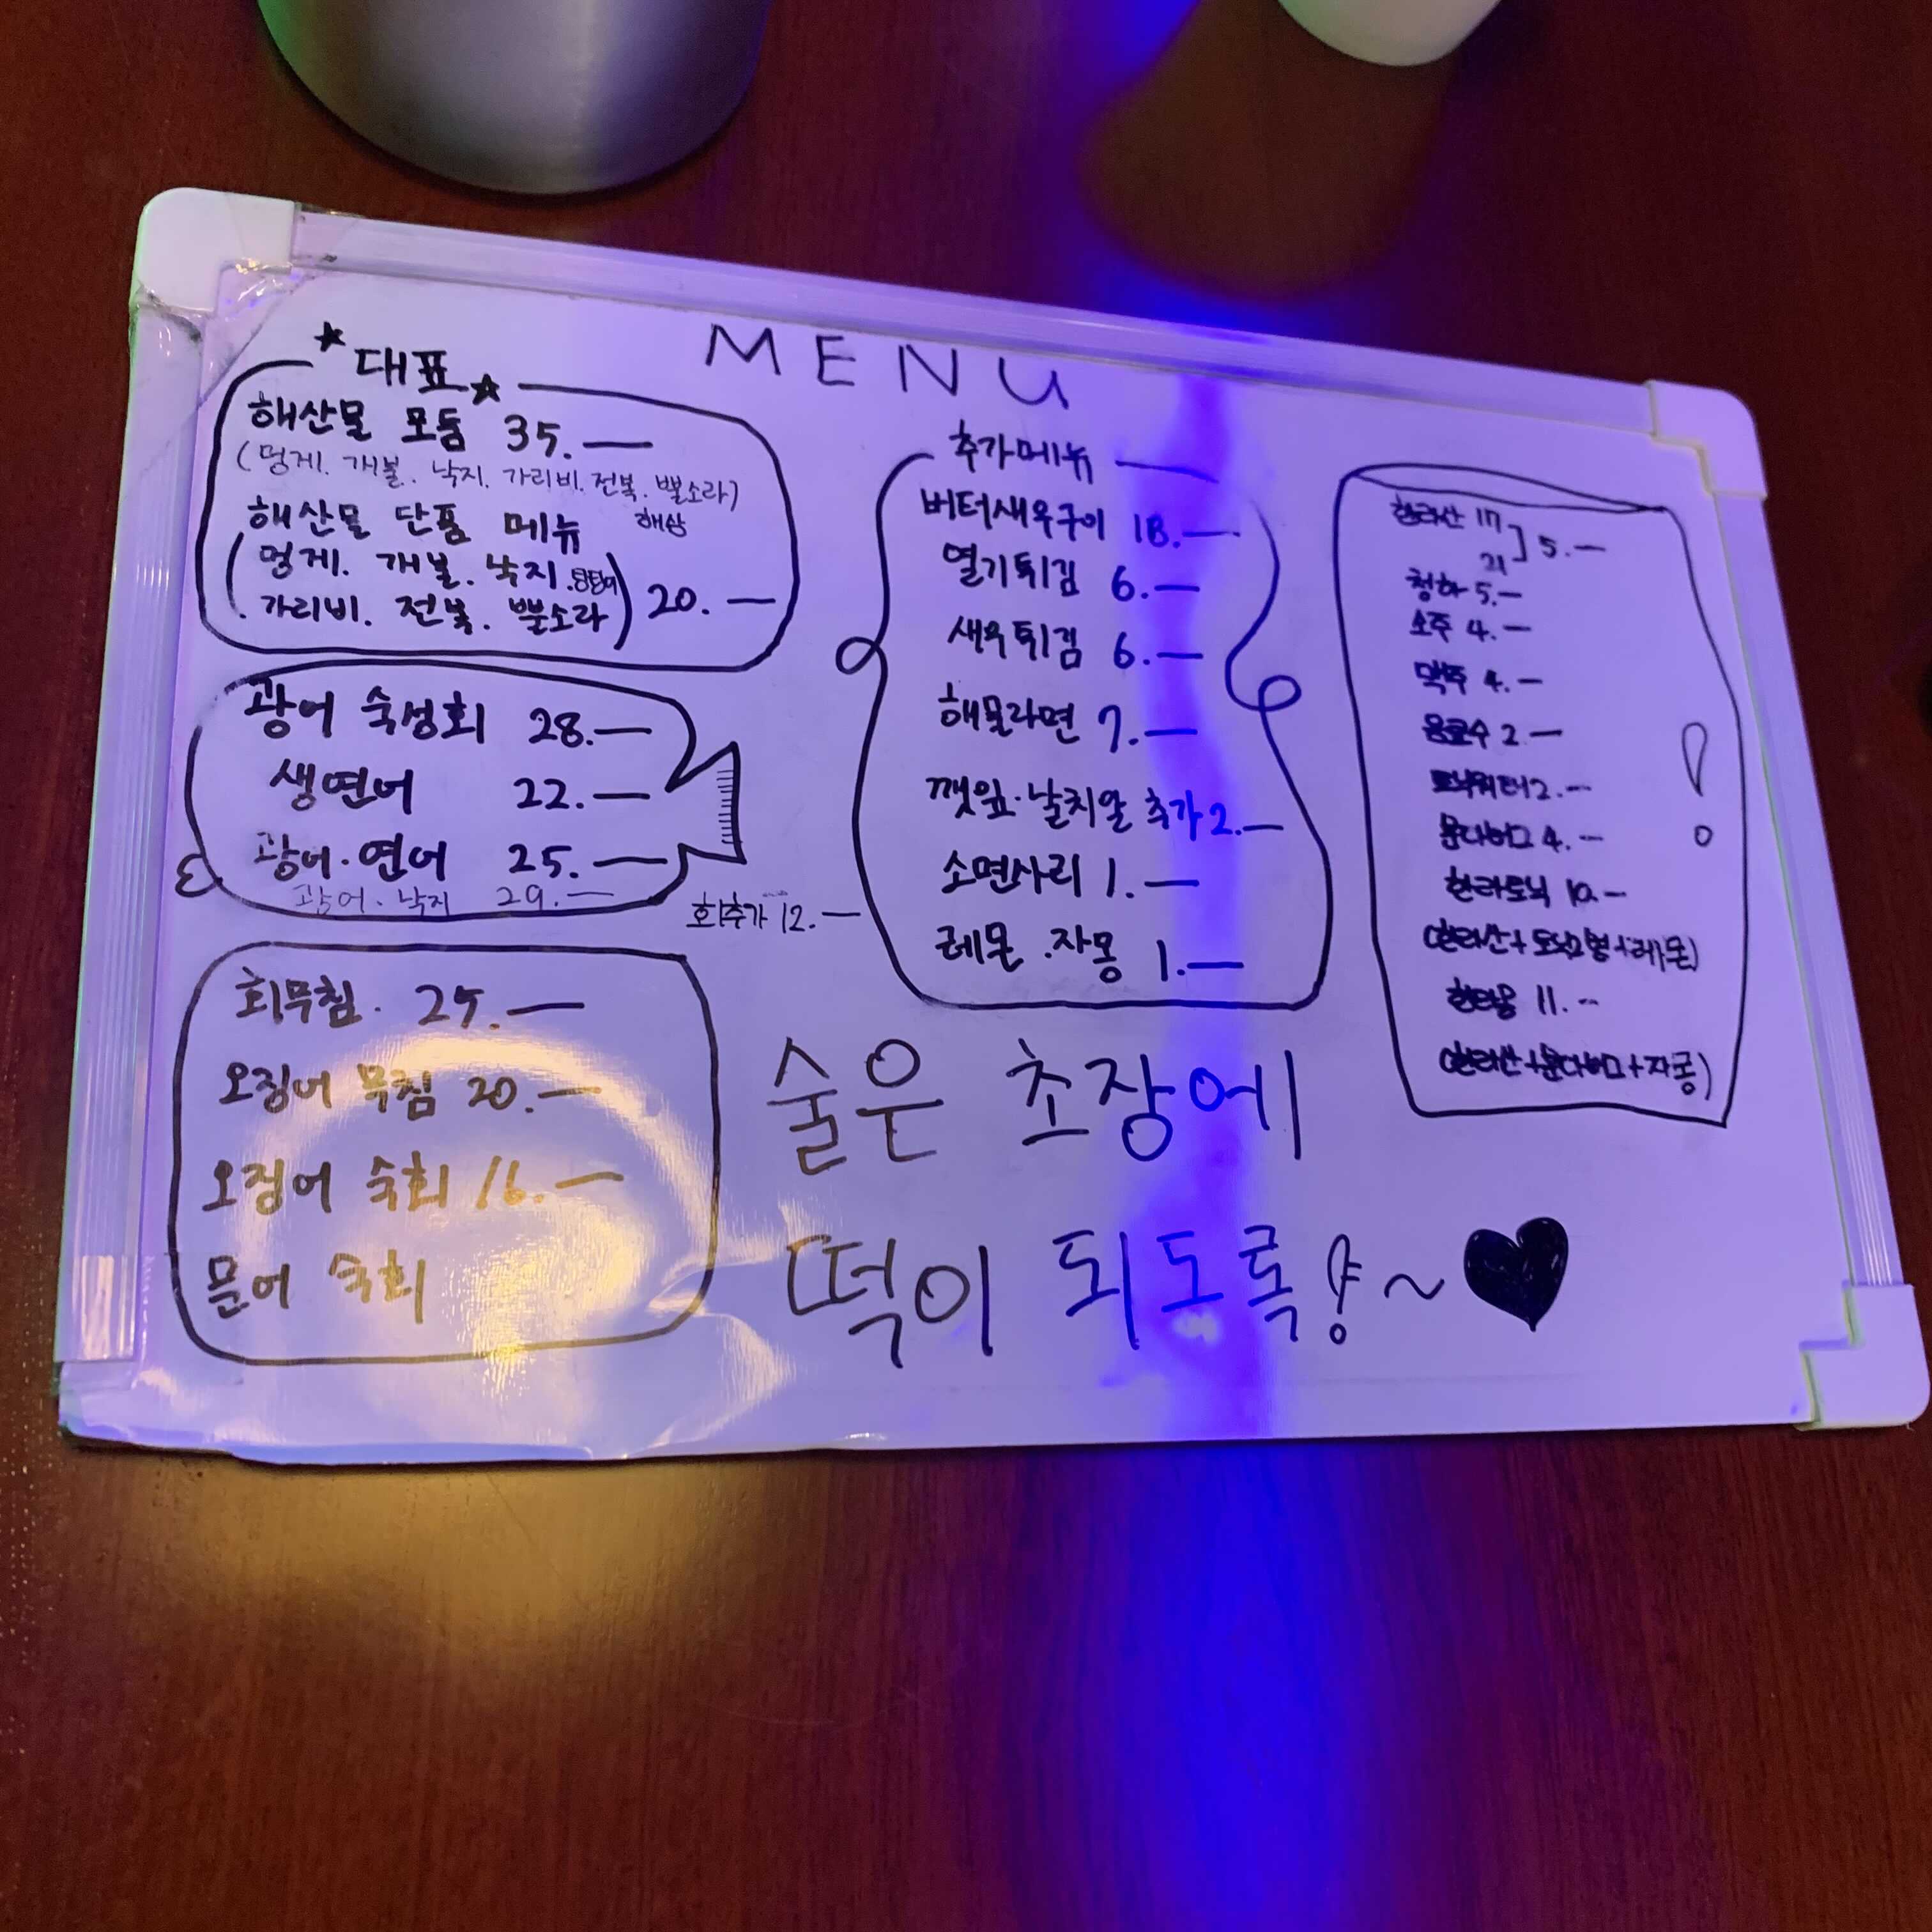 MENU
대표
해산물 모둠 35.—
(멍게. 개불. 낙지. 가리비. 전복. 뿔소라)
해삼
해산물 단품 메뉴
(멍게. 개불. 낙지.탕탕이
가리비. 전복. 뿔소라) 20.—
광어 숙성회 28.—
생연어 22.—
광어·연어 25.—
광어·낙지 29.—
회추가 12.—
회무침. 25.—
오징어 무침 20.—
오징어 숙회 16.—
문어 숙회
추가메뉴
버터새우구이 18.—
열기튀김 6.—
새우튀김 6.—
해물라면 7.—
깻잎·날치알 추가 2.—
소면사리 1.—
레몬.자몽 1.—
한라산 17
21 ] 5.—
청하 5.—
소주 4.—
맥주 4.—
음료수 2.—
토닉워터 2.—
분다버그 4.—
한라토닉 10.—
(한라산+토닉2병+레몬)
한라봉 11.—
(한라산+분다버그+자몽)
술은 초장에
떡이 되도록!~♥